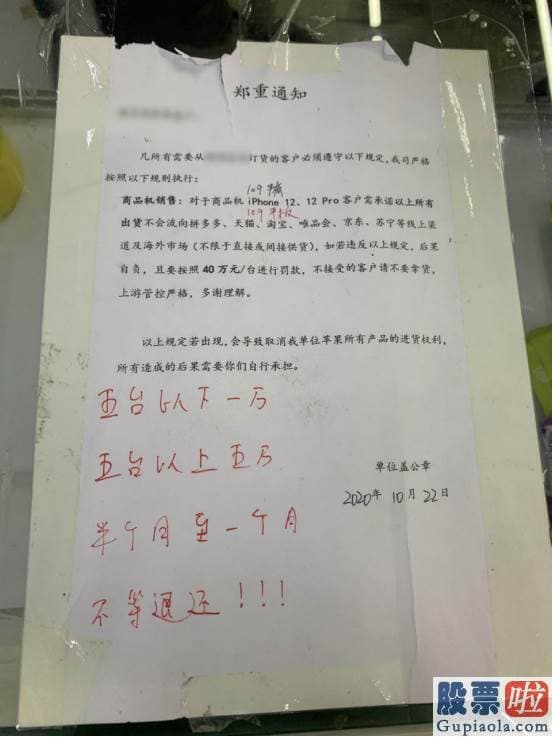 郑重通知
凡所有需要从 订货的客户必须遵守以下规定，我司严格
按照以下规则执行：
10.9平板
商品机销售：对于商品机 iPhone 12、12 Pro 客户需承诺以上所有
10.9平板
出货不会流向拼多多、天猫、淘宝、唯品会、京东、苏宁等线上渠
道及海外市场（不限于直接或间接供货），如若违反以上规定，后果
自负，且要按照 40 万元/台进行罚款，不接受的客户请不要拿货，
上游管控严格，多谢理解。
以上规定若出现，会导致取消我单位苹果所有产品的进货权利，
所有造成的后果需要你们自行承担。
五台以下一万
五台以上五万
单位盖公章
2020年 10月 22日
半个月至一个月
不等退还！！！
股票啦
Gupiaola.com